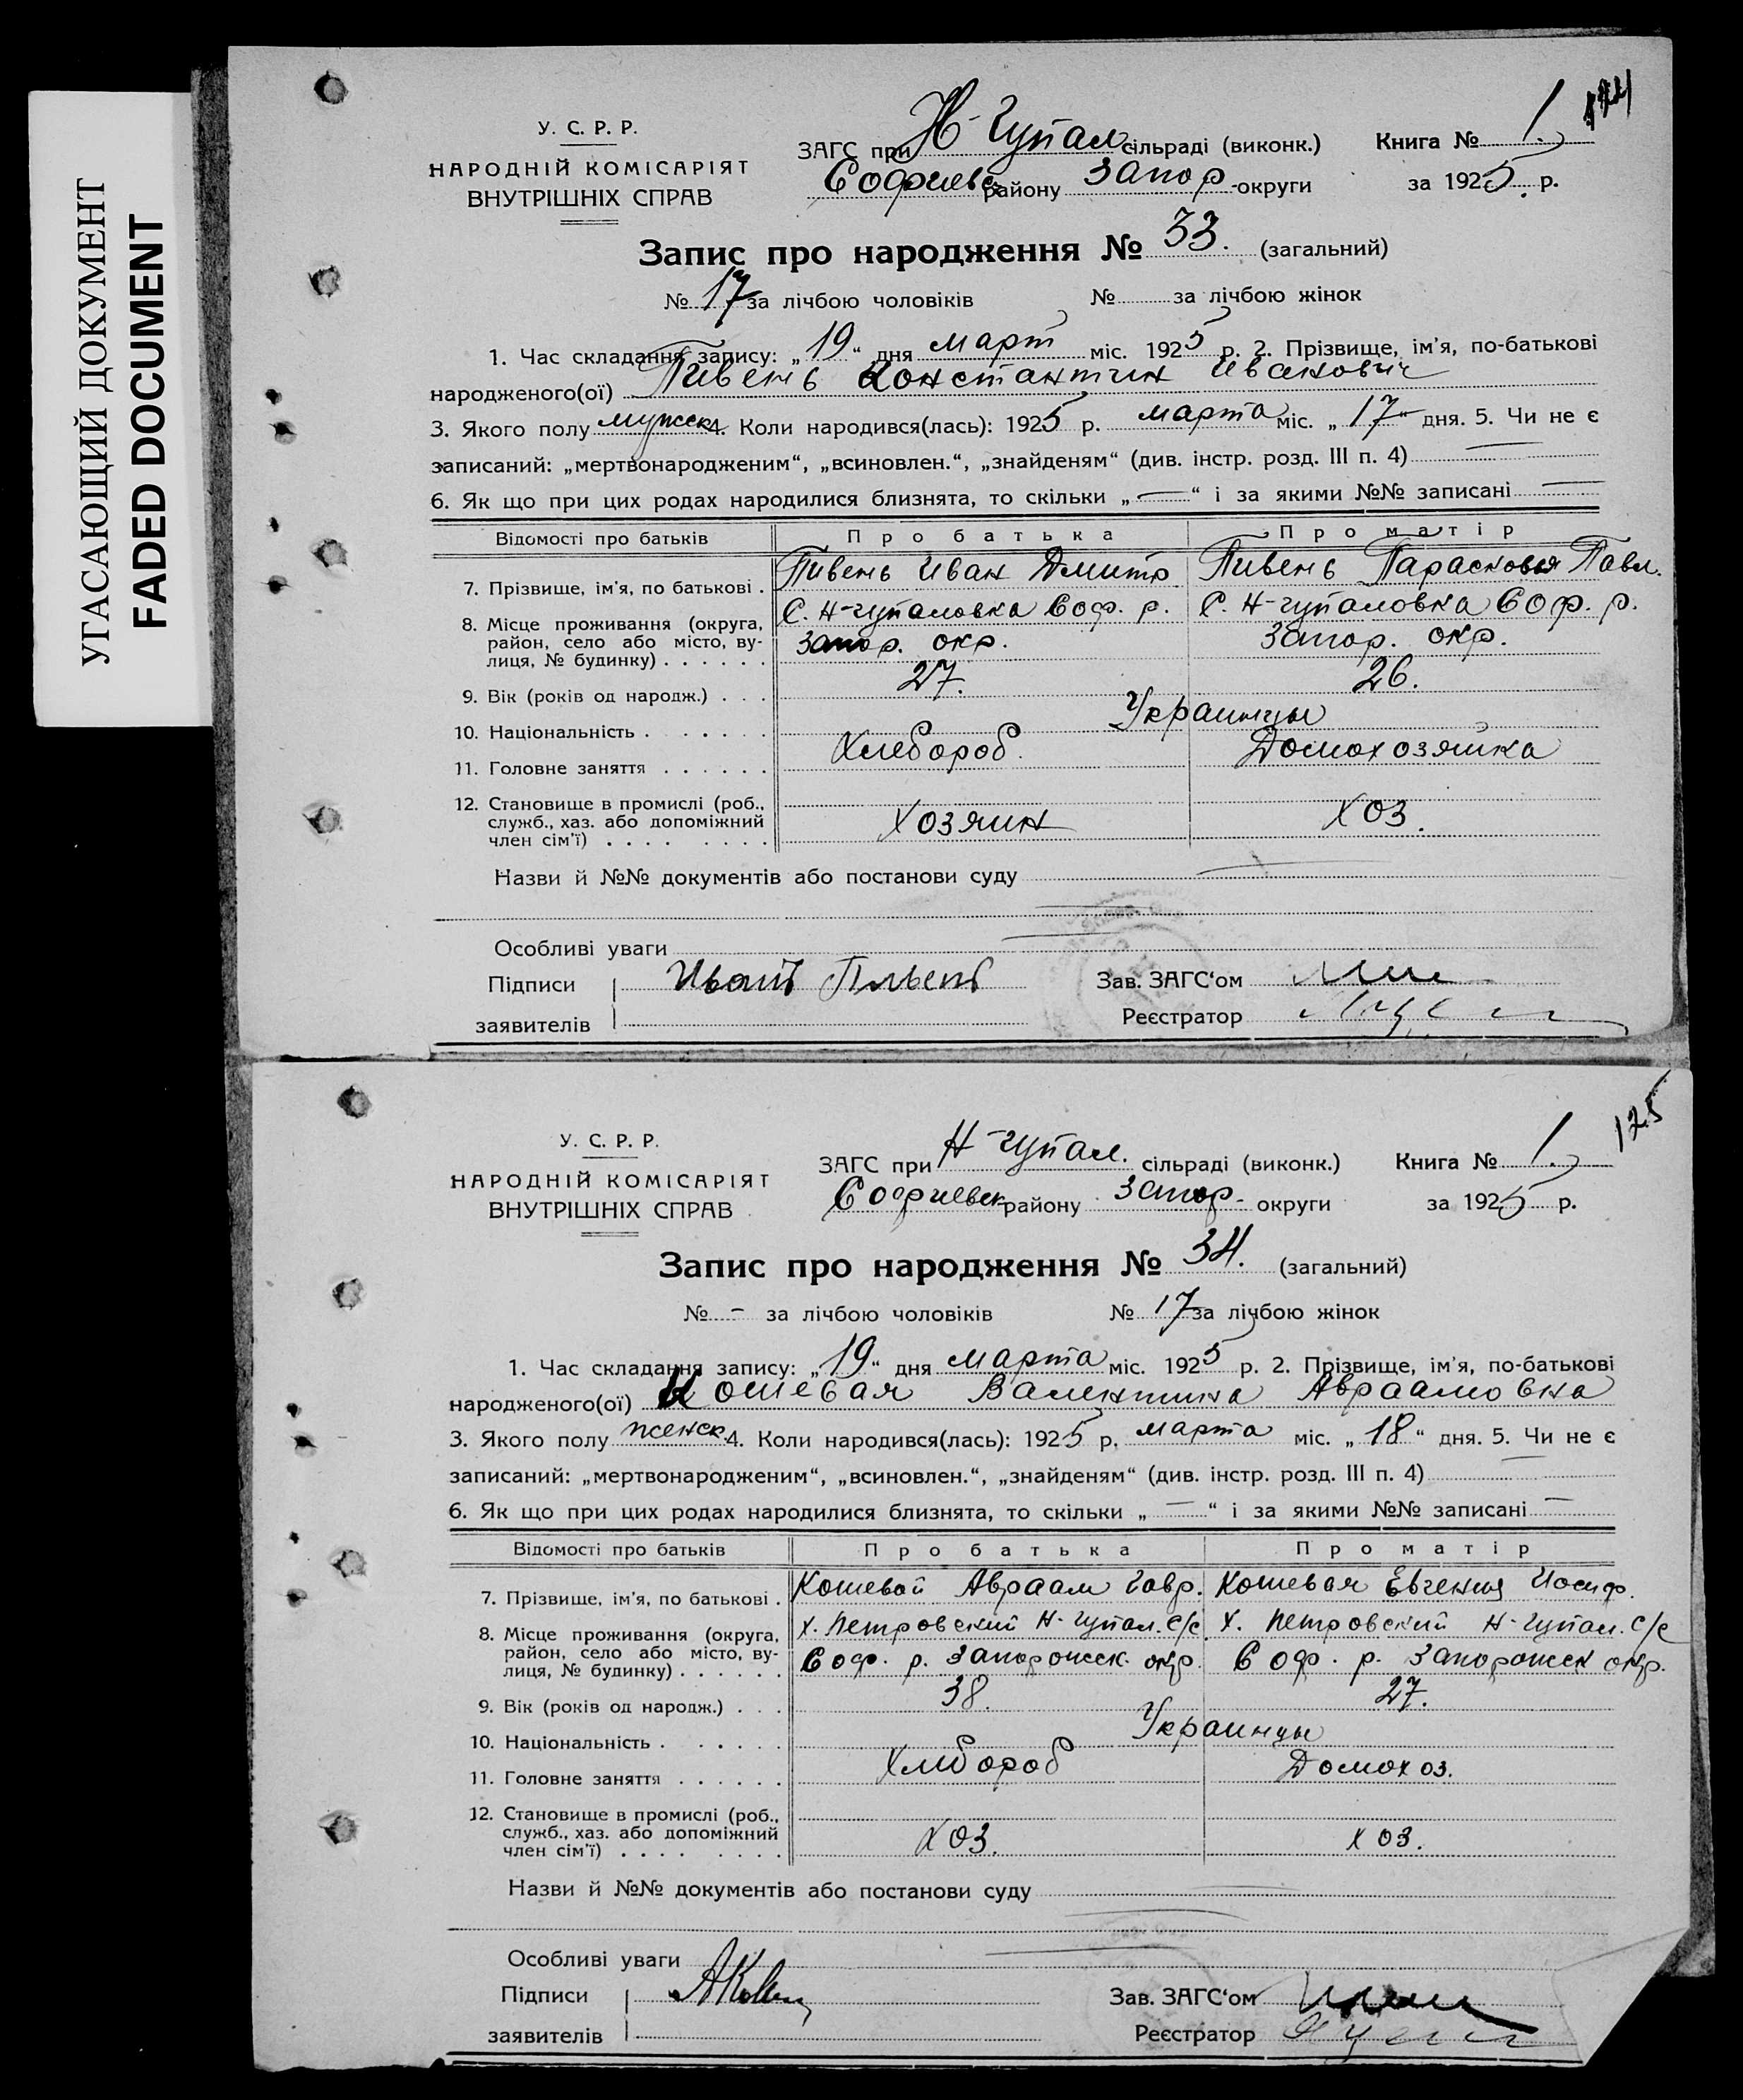 УГАСАЮЩИЙ ДОКУМЕНТ
FADED DOCUMENT
124
У. С. Р. Р.
НАРОДНІЙ КОМІСАРІЯТ
ВНУТРІШНІХ СПРАВ
ЗАГС при Н-Чупал. сільраді (виконк.) Книга № 1.
Софиевс району Запор. округи за 1925 р.
Запис про народження № 33. (загальний)
№ 17 за лічбою чоловіків № за лічбою жінок
1. Час складання запису: „19“ дня март міс. 1925 р. 2. Прізвище, ім’я, по-батькові
народженого(ої) Пивень Константин Иванович
3. Якого полу мужск. 4. Коли народився(лась): 1925 р. марта міс. „17“ дня. 5. Чи не є
записаний: „мертвонародженим“, „всиновлен.“, „знайденям“ (див. інстр. розд. III п. 4) —
6. Як що при цих родах народилися близнята, то скільки „—“ і за якими №№ записані —
Відомості про батьків Про батька Про матір
7. Прізвище, ім’я, по батькові . Пивень Иван Дмитр Пивень Парасковья Павл.
8. Місце проживання (округа, С. Н-Чупаловка Соф. р. С. Н-Чупаловка Соф. р.
район, село або місто, ву- Запор. окр. Запор. окр.
лиця, № будинку) . . . . . .
9. Вік (років од народж.) . . . 27. 26.
10. Національність . . . . . . Украинцы
11. Головне заняття . . . . . . Хлебороб. Домохозяйка
12. Становище в промислі (роб.,
служб., хаз. або допоміжний Хозяин хоз.
член сім’ї) . . . . . . . .
Назви й №№ документів або постанови суду —
Особливі уваги
Підписи Иван Пивень Зав. ЗАГС‘ом
заявителів Реєстратор
125
У. С. Р. Р.
НАРОДНІЙ КОМІСАРІЯТ
ВНУТРІШНІХ СПРАВ
ЗАГС при Н-Чупал. сільраді (виконк.) Книга № 1.
Софиевск району Запор. округи за 1925 р.
Запис про народження № 34. (загальний)
№ - за лічбою чоловіків № 17 за лічбою жінок
1. Час складання запису: „19“ дня марта міс. 1925 р. 2. Прізвище, ім’я, по-батькові
народженого(ої) Кошевая Валентина Авраамовна
3. Якого полу женск. 4. Коли народився(лась): 1925 р. марта міс. „18“ дня. 5. Чи не є
записаний: „мертвонародженим“, „всиновлен.“, „знайденям“ (див. інстр. розд. III п. 4) —
6. Як що при цих родах народилися близнята, то скільки „—“ і за якими №№ записані —
Відомості про батьків Про батька Про матір
7. Прізвище, ім’я, по батькові . Кошевой Авраам Гавр. Кошевая Евгения Иосиф.
8. Місце проживання (округа, х. Петровский Н-Чупал. с/с х. Петровский Н-Чупал. с/с
район, село або місто, ву- Соф. р. Запорожск. окр. Соф. р. Запорожск окр.
лиця, № будинку) . . . . . .
9. Вік (років од народж.) . . . 38. 27.
10. Національність . . . . . . Украинцы
11. Головне заняття . . . . . . Хлебороб Домохоз.
12. Становище в промислі (роб.,
служб., хаз. або допоміжний хоз. хоз.
член сім’ї) . . . . . . . .
Назви й №№ документів або постанови суду —
Особливі уваги
Підписи Зав. ЗАГС‘ом
заявителів Реєстратор